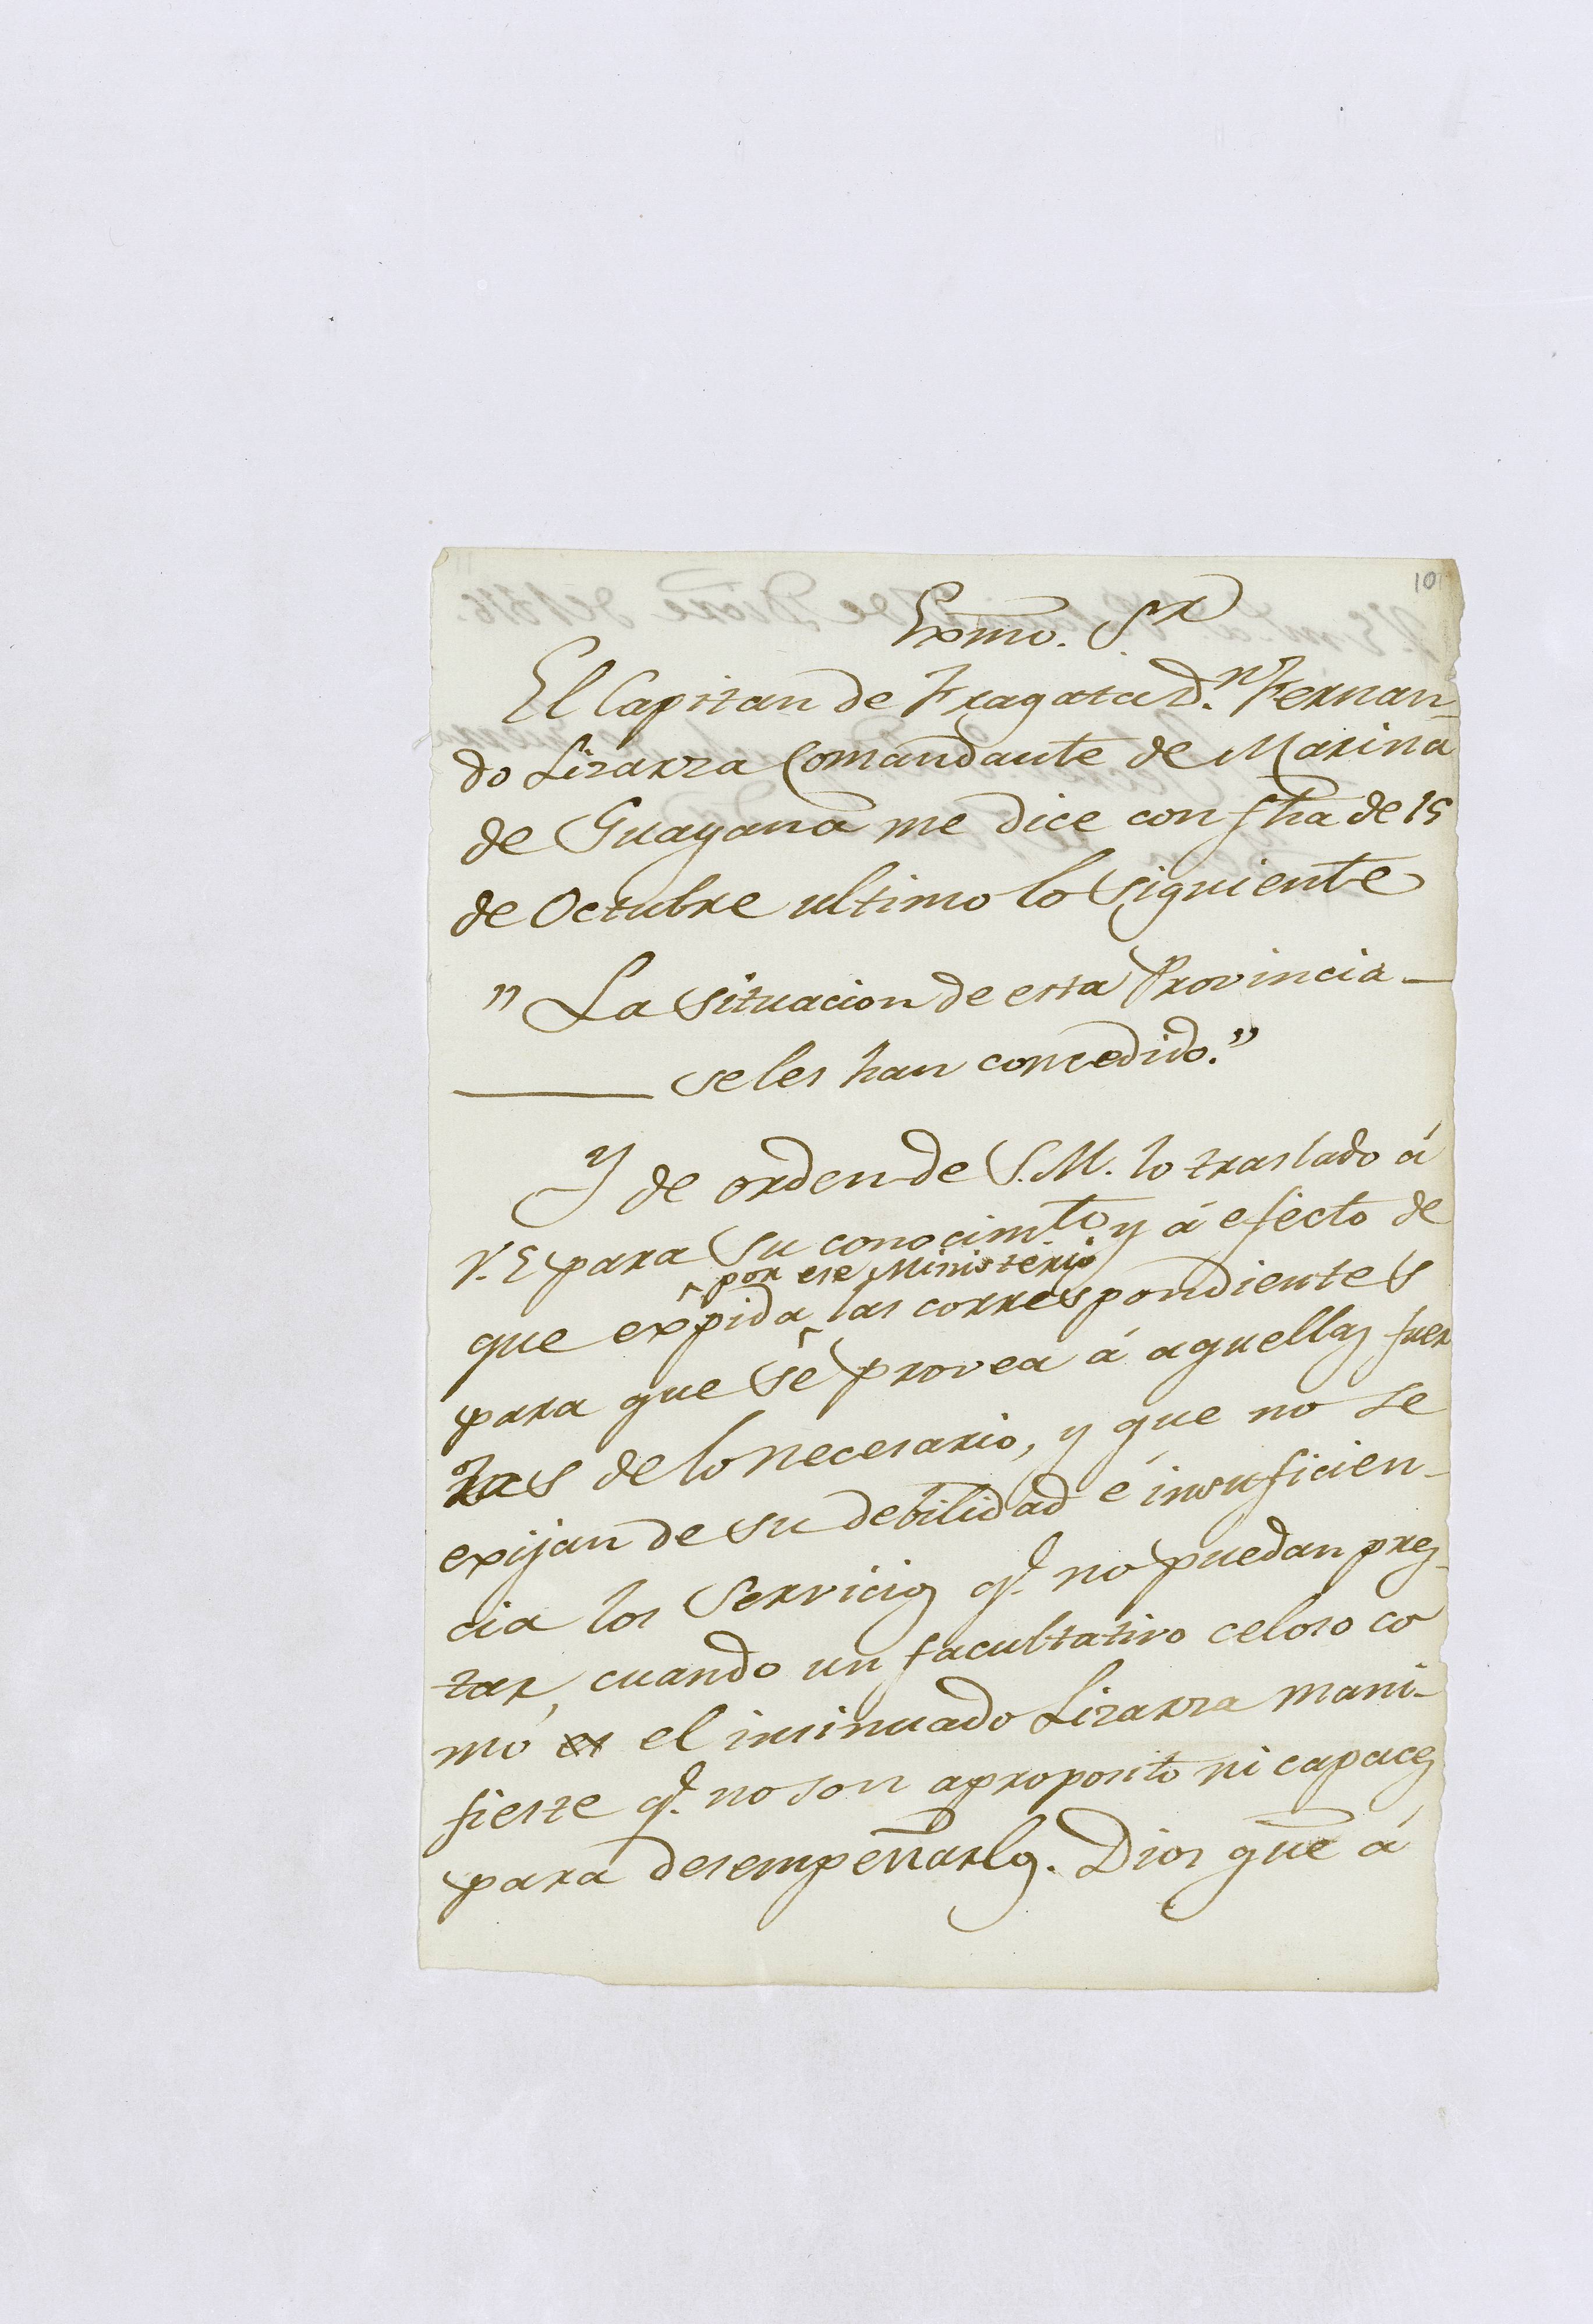 10
Exmo. S.r
El Capitan de Fragata D.n Fernan-
do Lizarza Comandante de Marina
de Guayana me dice con fha de 15
de Octubre ultimo lo siguiente
" La situacion de esta Provincia —
—— se les han concedido."
Y de orden de S.M. lo traslado á
V.E para su conocim.to y á efecto de
por ese Ministerio
que expida las correspondientes
para que se provea á aquellas fuer
zas de lo necesario, y que no se
exijan de su debilidad é insuficien-
cia los Servicios q.e no puedan pres-
tar, cuando un facultativo celoso co
mo el insinuado Lizarza mani-
fieste q.e no son aproposito ni capaces
para desempeñarlos. Dios gue á